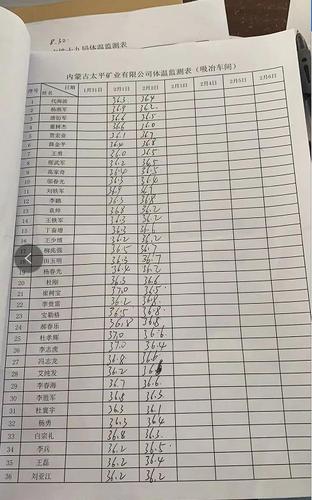 8.30
体温监测表
内蒙古太平矿业有限公司体温监测表（吸冶车间）
序号 姓名 日期 1月31日 2月1日 2月2日 2月3日 2月4日 2月5日 2月6日
1 代海波 36.3 36.4
2 杨燕军 36.9 36.2
3 36.6 36.5
4 36.6 36.0
5 贾宏业 36.1 36.7
6 薛金平 36.4 36.8
7 王勇 36.0 36.5
8 36.2 36.5
9 高家奇 36.4 36.5
10 邬春光 36.3 36.4
11 刘铁军 36.9
12 李鹏 36.3 36.8
13 袁帅 36.8 36.2
14 王铁军 36.3 36.2
15 丁奋增 36.3 36.6
16 王少博 36.2 36.2
17 36.5 36.7
18 田玉明 36.3 36.7
19 杨春光 36.4 36.2
20 杜刚 36.3 36.6
21 崔树宝 37.0 36.5
22 李贵雷 36.2 36.8
23 宝勒格 36.5 36.8
24 郝春乐 36.8 36.8
25 杜孝辉 37.0 36.6
26 李志虎 37.0 36.4
27 冯志龙 36.8 36.6
28 艾纯发 36.2
29 李春海 36.7 36.6
30 李胜军 36.8 36.3
31 杜寰宇 36.3 36.1
32 杨勇 36.3 36.4
33 白宗礼 36.8 36.3
34 李兵 36.2 36.5
35 王磊 36.2 36.4
36 刘亚江 36.2 36.2